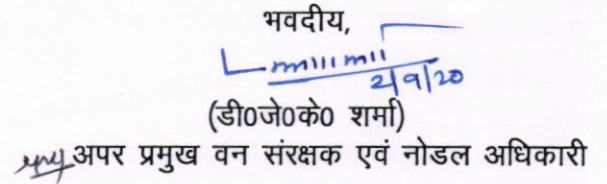 भवदीय,
2/9/20
(डी0जे0के0 शर्मा)
अपर प्रमुख वन संरक्षक एवं नोडल अधिकारी